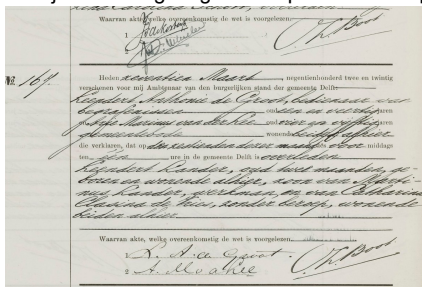 Waarvan akte, welke overeenkomstig de wet is voorgelezen.
1
2
Ch. Boot
No. 167.
Heden zeventien Maart, negentienhonderd twee en twintig
verschenen voor mij Ambtenaar van den burgerlijken stand der gemeente Delft:
Leendert Anthonie de Groot, bedienaar van
begrafenissen oud een en veertig jaren
en Arie Marinus van der Lee oud vier en vijftig
gemeentebode wonende beiden alhier
die verklaren, dat op den zestienden dezer maand, des voor middags
ten één ure in de gemeente Delft is overleden
Leendert Lander, oud twee maanden, ge-
boren en wonende alhier, zoon van
Lander, werkman, en van Catharina
Clasina de Vries, zonder beroep, wonende
beiden alhier.
Waarvan akte, welke overeenkomstig de wet is voorgelezen.
1 L. A. de Groot.
2 A. M. v d Lee
Ch. Boot